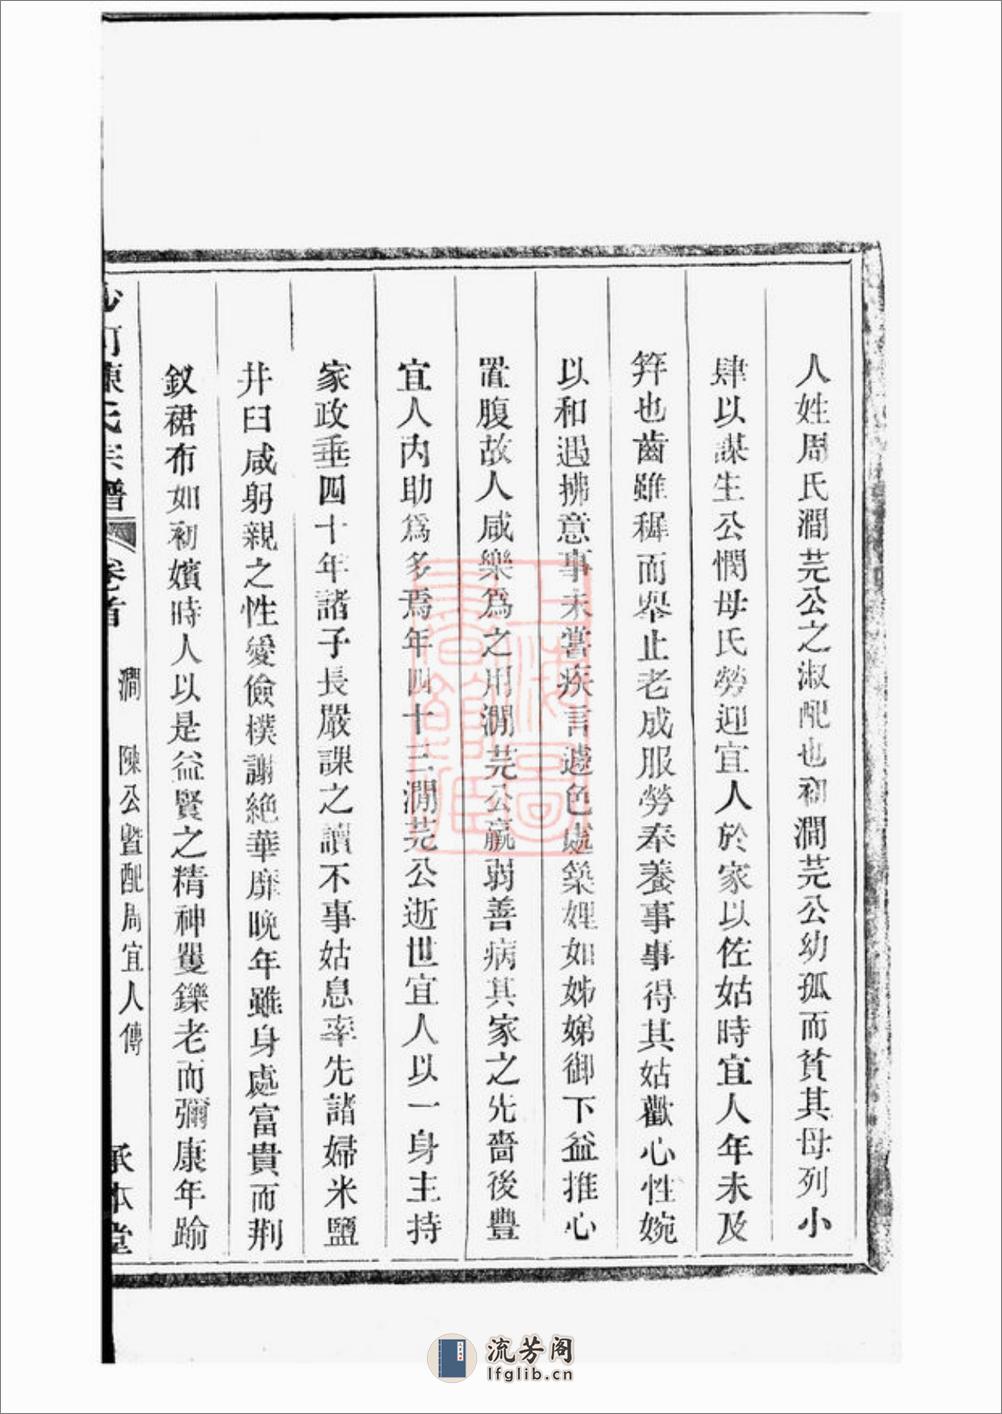 人姓周氏澗芫公之淑配也初澗芫公幼孤而貧其母列小
肆以謀生公憫母氏勞迎宜人於家以佐姑時宜人年未及
笄也齒雖穉而舉止老成服勞奉養事事得其姑歡心性婉
以和遇拂意事未嘗疾言遽色處築娌如姊娣御下益推心
置腹故人咸樂為之用澗芫公羸弱善病其家之先嗇後豐
宜人內助為多焉年四十三澗芫公逝世宜人以一身主持
家政垂四十年諸子長嚴課之讀不事姑息率先諸婦米鹽
井臼咸躬親之性愛儉樸謝絕華靡晚年雖身處富貴而荆
釵裙布如初嬪時人以是益賢之精神矍鑠老而彌康年踰
陳氏宗譜 卷首 澗 陳公暨配周宜人傳 承本堂
上海圖書館藏
流芳阁
lfglib.cn